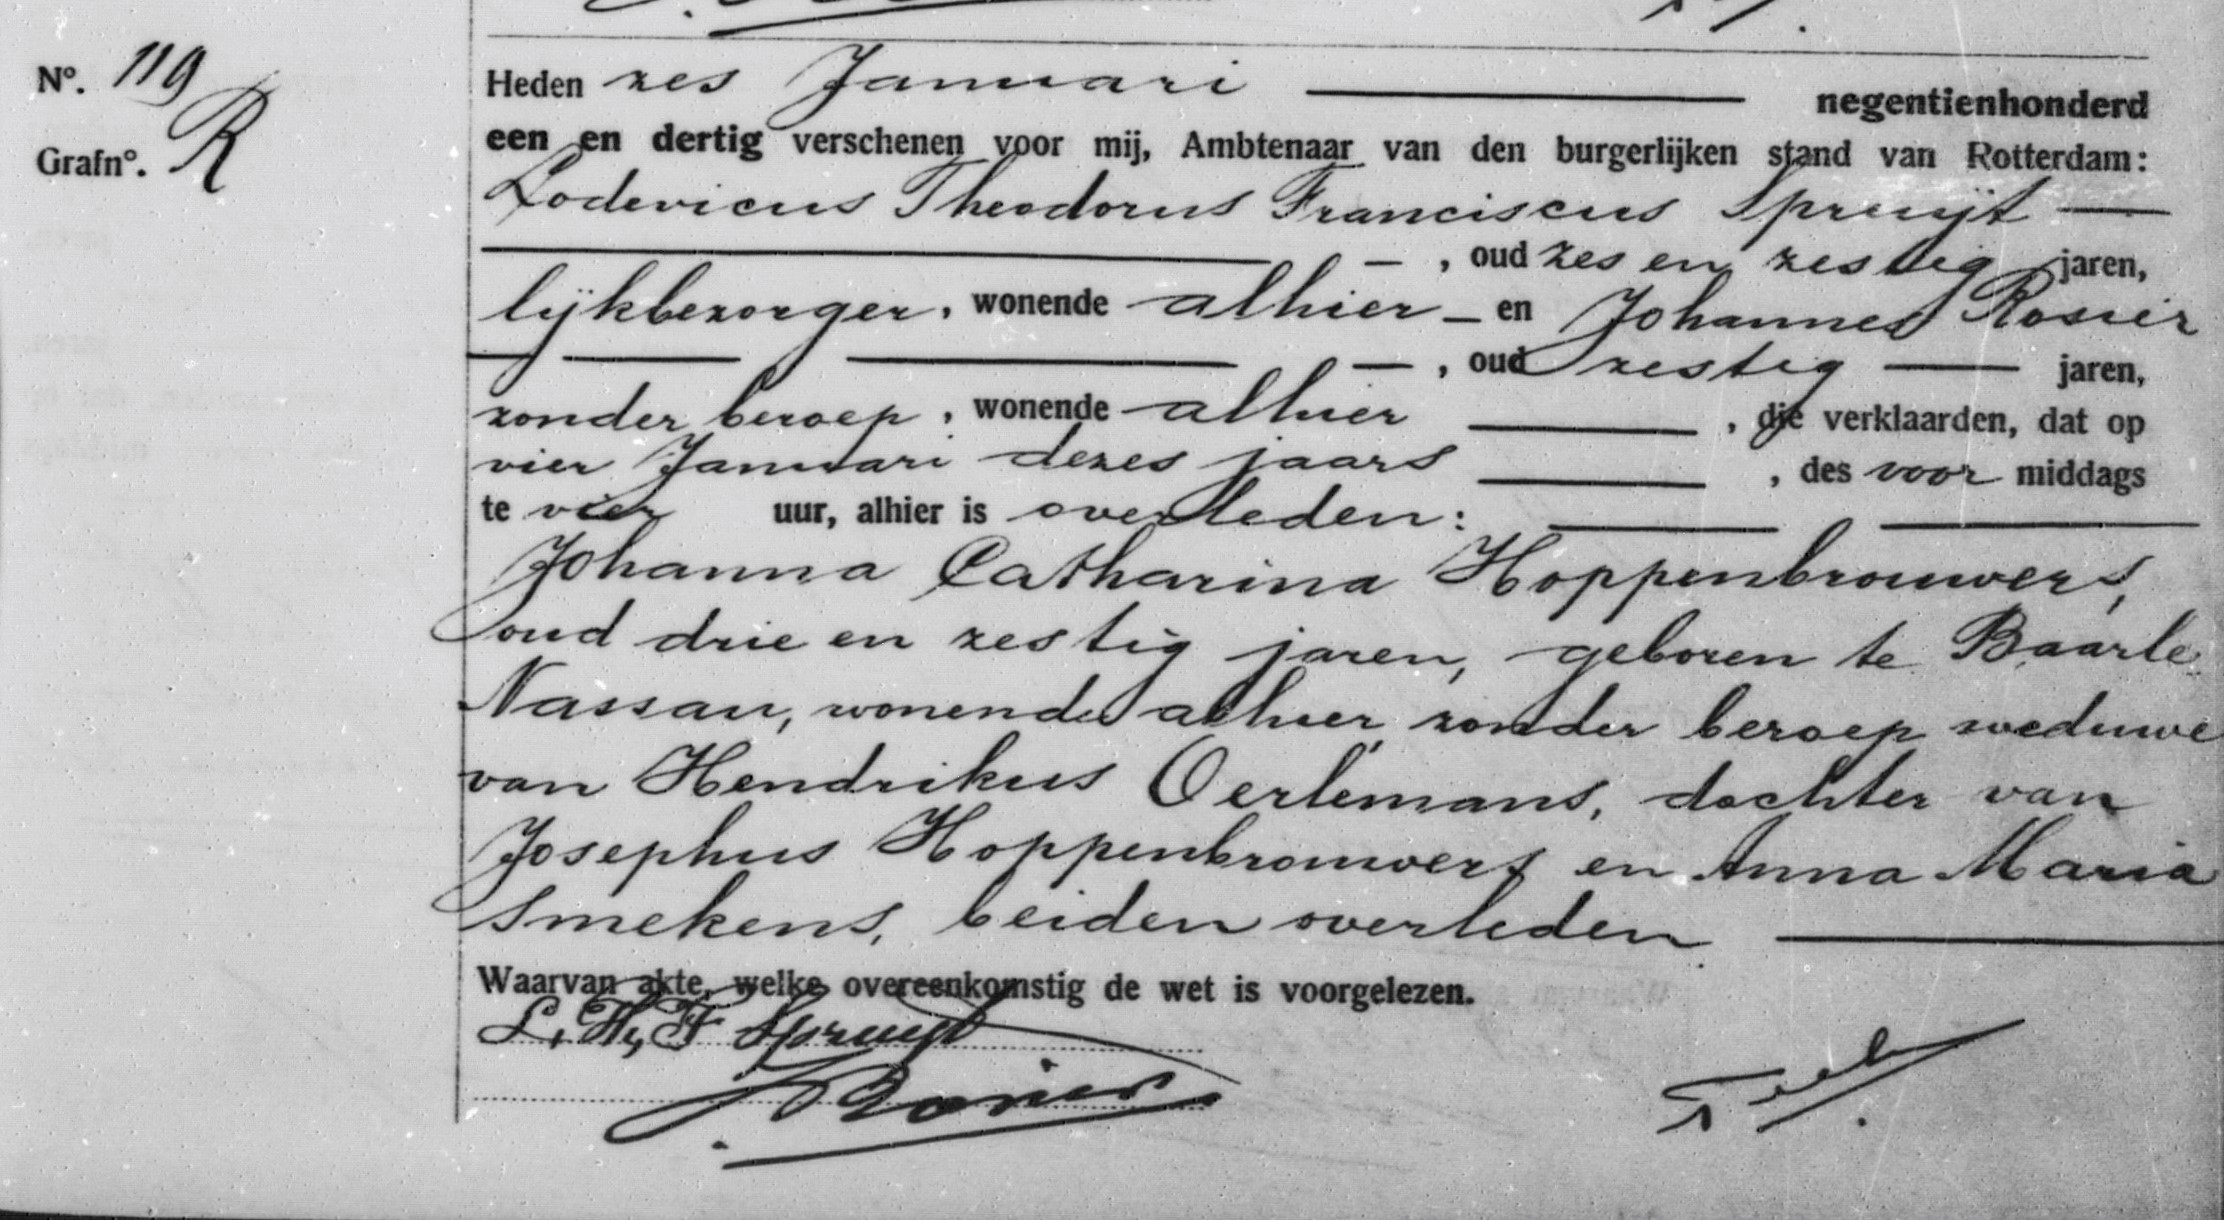 Nº. 119
Grafnº. R
Heden zes Januari negentienhonderd
een en dertig verschenen voor mij, Ambtenaar van den burgerlijken stand van Rotterdam:
Lodevicus Theodorus Franciscus Spruijt
, oud zes en zestig jaren,
lijkbezorger, wonende alhier en Johannes Rosier
, oud zestig jaren,
zonder beroep, wonende alhier , die verklaarden, dat op
vier Januari dezes jaars , des voor middags
te vier uur, alhier is overleden:
Johanna Catharina Hoppenbrouwers,
oud drie en zestig jaren, geboren te Baarle
Nassau, wonende alhier zonder beroep weduwe
van Hendrikus Oerlemans, dochter van
Josephus Hoppenbrouwers en Anna Maria
Smekens, beiden overleden
Waarvan akte, welke overeenkomstig de wet is voorgelezen.
L. Th. F Spruijt
J Rosier